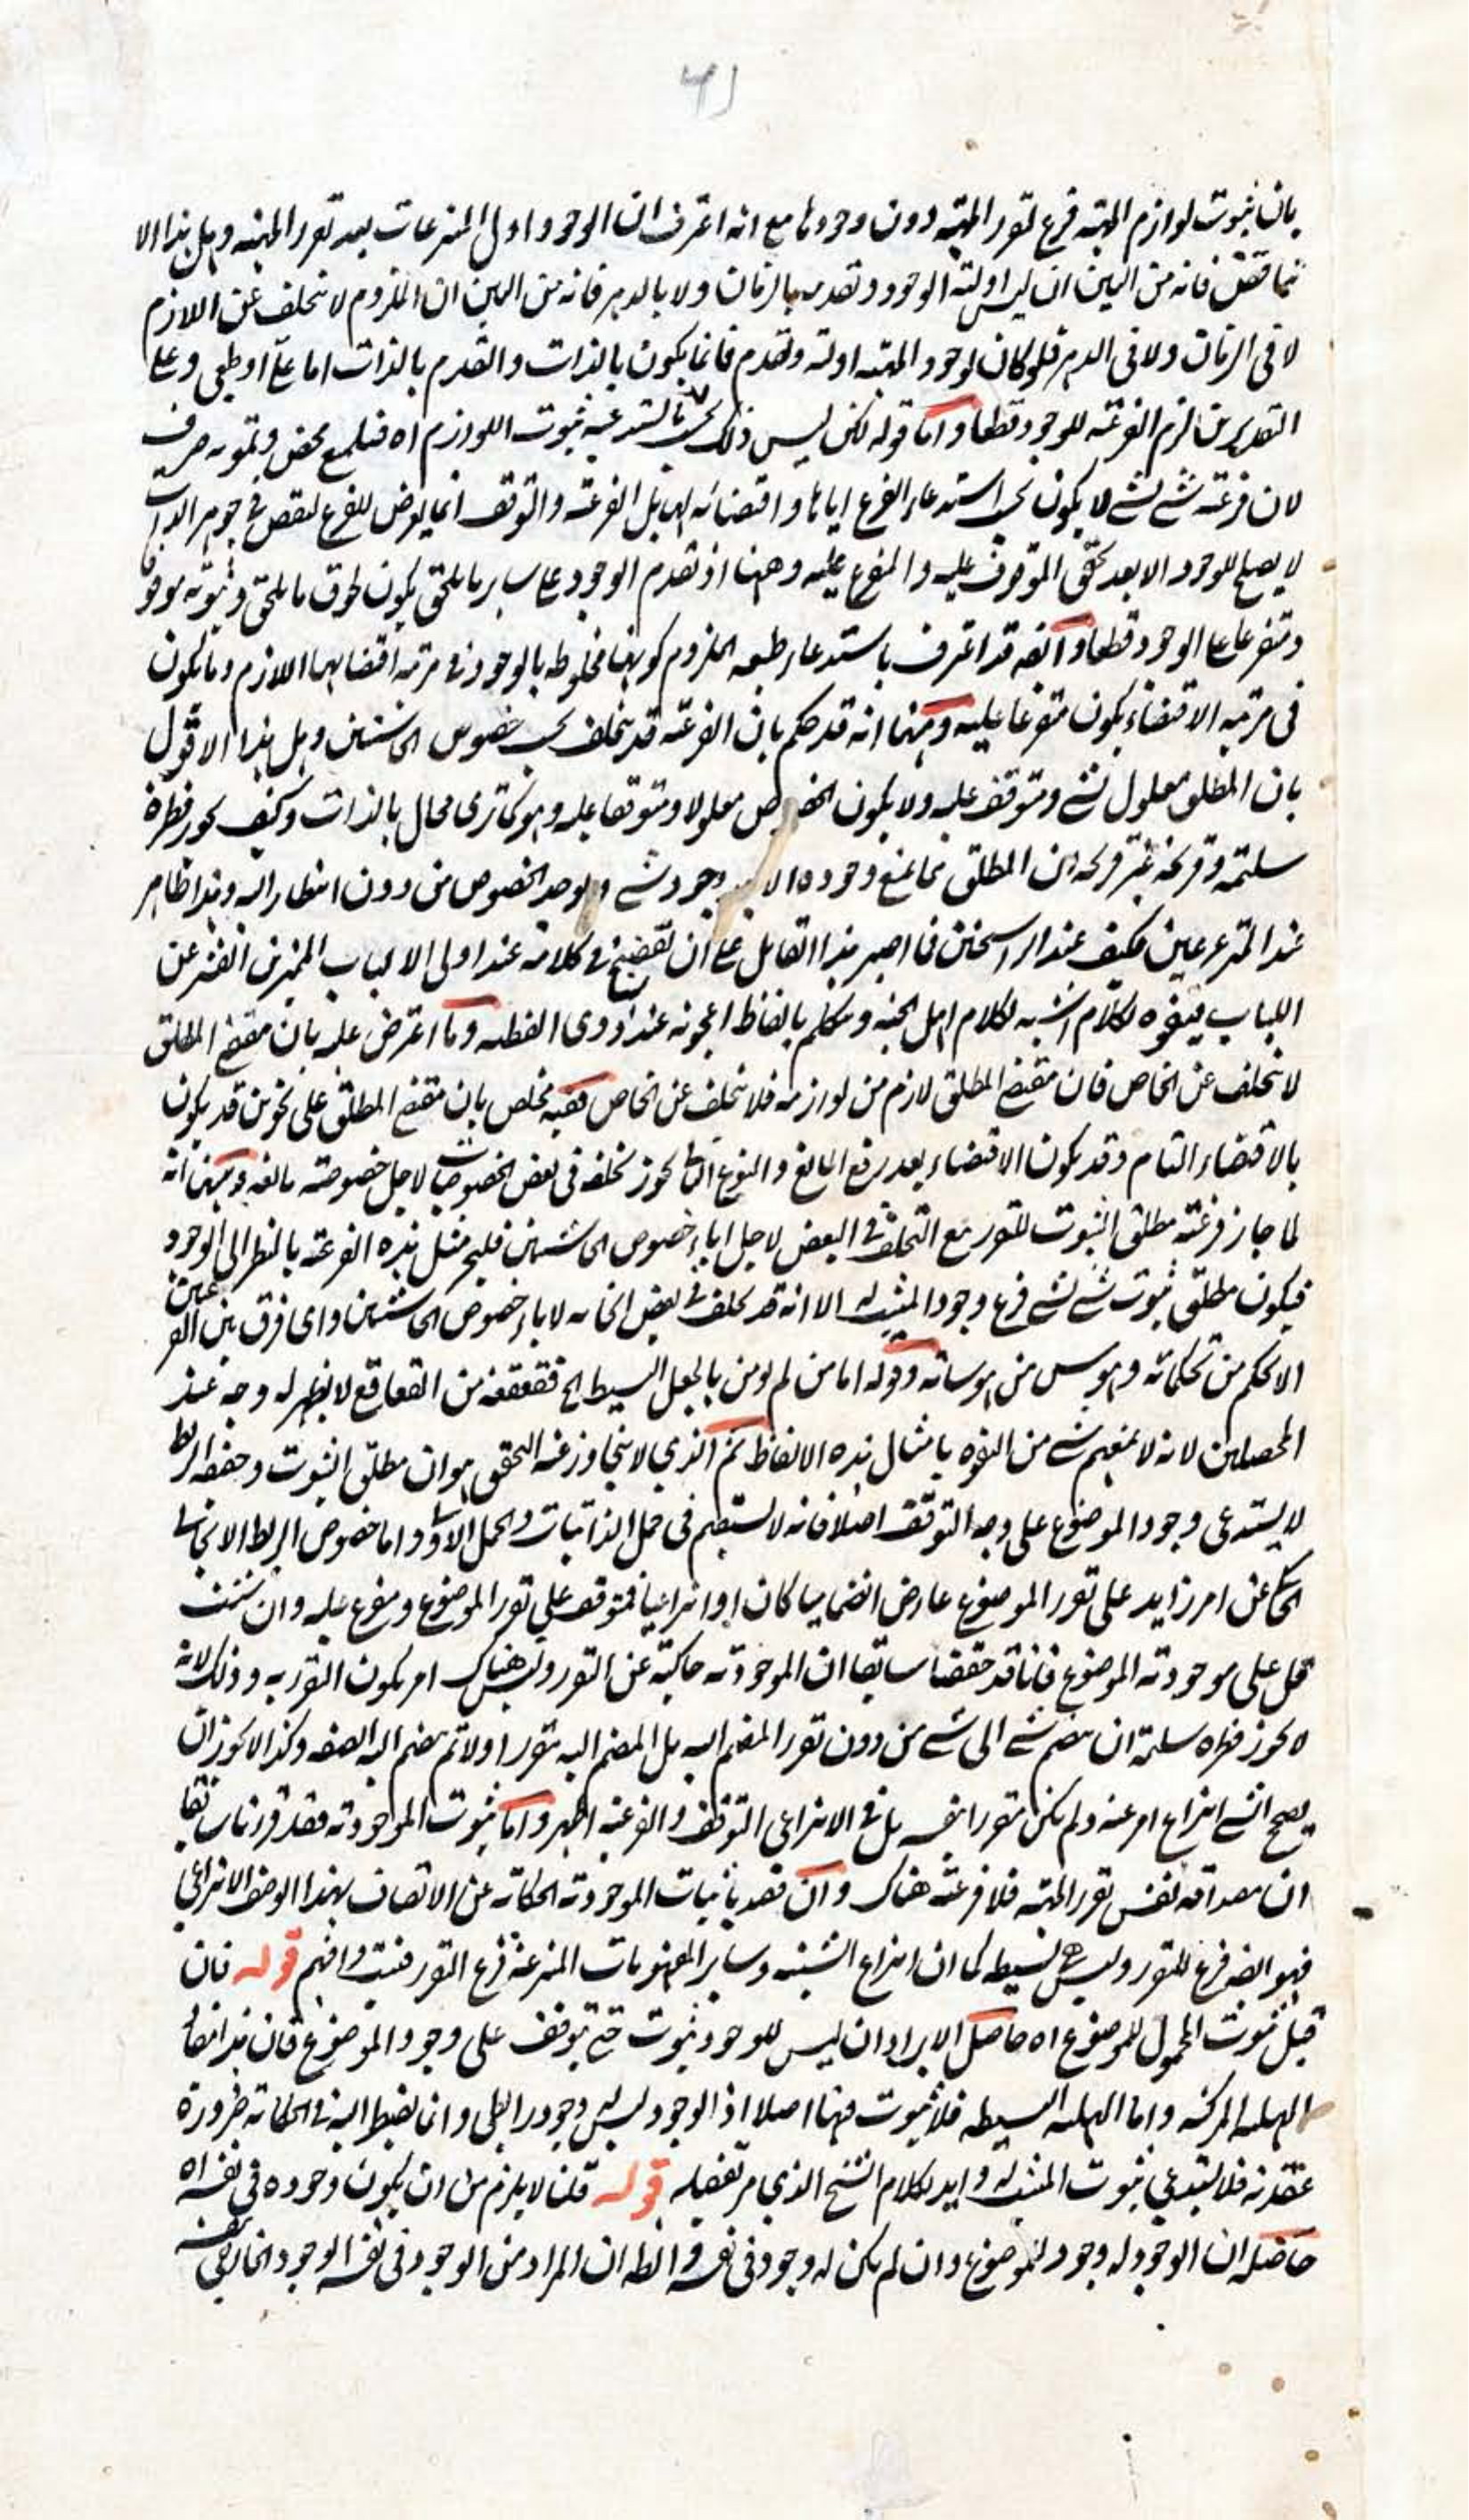 بان ثبوت لوازم المهية فرع لتقرر المهية دون وجودها مع انه اعترف ان الوجود اول المنتزعات بعد تقرر المهية وهل هذا الا
تناقض فانه من البين ان ليس اولية الوجود وتقدمه بالزمان ولا بالدهر فانه من البين ان الملزوم لا يتخلف عن اللازم
لا فى الزمان ولا فى الدهر فلو كان لوجود المهية اولية وتقدم فانما يكون بالذات والتقدم بالذات اما علّى او طبعى وعلى
التقديرين لزم الفرعية للوجود قطعا واما قوله لكن ليس ذلك بحسب ما يستدعيه ثبوت اللوازم اه فتلميع محض وتمويه صرف
لان فرعية شئ لشئ لا يكون بحسب استدعاء الفرع اياها واقتضائه لها بل الفرعية والتوقف انما يعرض للفرع لنقص فى جوهر الذات
لا يصلح للوجود الا بعد تحقق الموقوف عليه والمتفرع عليه وههنا اذ تقدم الوجود على ساير ما يلحق يكون لحوق ما يلحق وثبوته موقوفا
ومتفرعا على الوجود قطعا وايضه قد اعترف باستدعاء طبيعة الملزوم كونها مخلوطة بالوجود فى مرتبة اقتضائها اللازم وما يكون
فى مرتبة الاقتضاء يكون متفرعا عليه ومنها انه قد حكم بان الفرعية قد يتخلف بحسب خصوص الحاشيتين وهل هذا الا قول
بان المطلق معلول لشئ ومتوقف عليه ولا يكون الخصوص معلولا ومتوقفا عليه وهو كما ترى محال بالذات وكيف يجوز فطرة
سليمة وقريحة غير قريحة ان المطلق مما يمتنع وجوده الا بعد وجود شئ ويوجد الخصوص من دون انتظار اليه وهذا ظاهر
عند المترعرعين فكيف عند الراسخين فما اصبر هذا القايل على ان يفضح فى كلامه عند اولى الالباب المميزين القشر عن
اللباب فيتفوه بكلام اشبه بكلام اهل الجنة ويتكلم بالفاظ اعجوبة عند ذوى الفطنة وما اعترض عليه بان مقتضى المطلق
لا يتخلف عن الخاص فان مقتضى المطلق لازم من لوازمه فلا يتخلف عن الخاص ففيه مخلص بان مقتضى المطلق على نحوين قد يكون
بالاقتضاء التام وقد يكون الاقتضاء بعد رفع المانع والنوع الثانى يجوز تخلفه فى بعض الخصوصيات لاجل خصوصية مانعة ومنها انه
لما جاز فرعية مطلق الثبوت للتقرر مع التخلف فى البعض لاجل اباء خصوص الحاشيتين فليجز مثل هذه الفرعية بالنظر الى الوجود
فيكون مطلق ثبوت شئ لشئ فرع وجود المثبت له الا انه قد تخلف فى بعض الخاصة لاباء خصوص الحاشيتين واى فرق بين الفرعيتين
الا تحكم من تحكماته وهوس من هوساته وقوله اما من لم يؤمن بالجعل البسيط الخ فقعقعة من القعاقع لا يظهر له وجه عند
المحصلين لانه لا يمنعهم شئ من التفوه بامثال هذه الالفاظ ثم الذى لا يتجاوز عنه التحقق هو ان مطلق الثبوت وحقيقة الربط
لا يستدعى وجود الموضوع على وجه التوقف اصلا فانه لا يستقيم فى حمل الذاتيات والحمل الاولى واما خصوص الربط الايجابى
الحاكى عن امر زايد على تقرر الموضوع عارض انضماميا كان او انتزاعيا فمتوقف على تقرر الموضوع ومفرع عليه وان شئت
قل على موجودية الموضوع فانا قد حققنا سابقا ان الموجودية حاكية عن التقرر وليس هناك امر يكون التقرر به وذلك لانه
لا يجوز فطرة سليمة ان ينضم شئ الى شئ من دون تقرر المنضم اليه بل المنضم اليه يتقرر اولا ثم ينضم اليه الصفة وكذا لا يجوز ان
يصحح الشئ انتزاع امر عنه ولم يكن متقررا بنفسه بل فى الانتزاعى التوقف والفرعية اظهر واما ثبوت الموجودية فقد قررنا سابقا
ان مصداقه نفس تقرر المهية فلا فرعية هناك وان قصد باثبات الموجودية الحكاية عن الاتصاف بهذا الوصف الانتزاعى
فهو ايضه فرع للتقرر وليس ح بسيطة كما ان انتزاع الشيئية وساير المفهومات المنتزعة فرع التقرر فتثبت وافهم قوله فان
قيل ثبوت المحمول للموضوع اه حاصل الايراد ان ليس للوجود ثبوت حتى يتوقف على وجود الموضوع فان هذا انما
الهلية المركبة واما الهلية البسيطة فلا ثبوت فيها اصلا اذ الوجود ليس وجود رابطى وانما يضبط اليه فى الحكاية ضرورة
عقدية فلا يستدعى ثبوت المثبت له وايد بكلام الشيخ الذى مر تفصيله قوله قلنا لا يلزم من ان يكون وجوده فى نفسه اه
حاصله ان الوجود له وجود للموضوع وان لم يكن له وجود فى نفسه والظ ان المراد من الوجود فى نفسه الوجود الخارجى